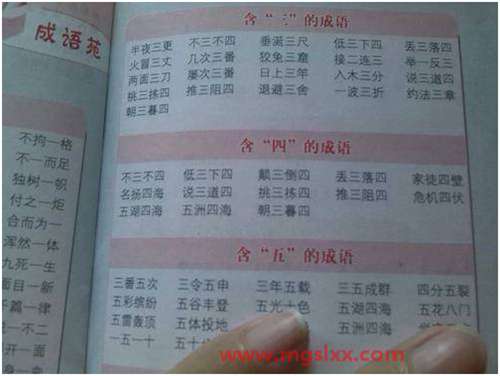 成语苑
不拘一格
不一而足
独树一帜
付之一炬
合而为一
浑然一体
九死一生
面目一新
篇一律
一不二
开一面
含“三”的成语
半夜三更 不三不四 垂涎三尺 低三下四 丢三落四
火冒三丈 几次三番 狡兔三窟 接二连三 举一反三
两面三刀 屡次三番 日上三竿 入木三分 说三道四
挑三拣四 推三阻四 退避三舍 一波三折 约法三章
朝三暮四
含“四”的成语
不三不四 低三下四 颠三倒四 丢三落四 家徒四壁
名扬四海 说三道四 挑三拣四 推三阻四 危机四伏
五湖四海 五洲四海 朝三暮四
含“五”的成语
三番五次 三令五申 三年五载 三五成群 四分五裂
五彩缤纷 五谷丰登 五光十色 五湖四海 五花八门
五雷轰顶 五体投地 五洲四海
一五一十 五十
www.mgslxx.com